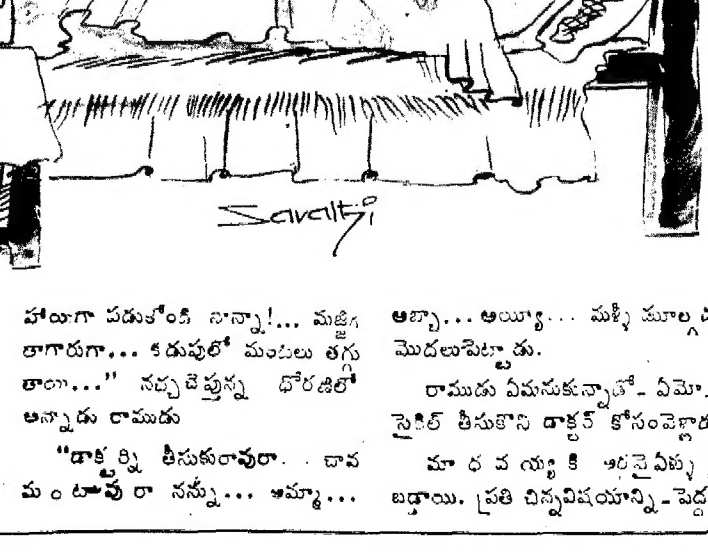 Savathi
హాయిగా పడుకోండి నాన్నా!... మజ్జిగ
తాగారుగా... కడుపులో మంటలు తగ్గు
తాయి..." నచ్చచెప్తున్న ధోరణిలో
అన్నాడు రాముడు
"డాక్టర్ని తీసుకురావురా... చావ
మంటావురా నన్ను... అమ్మా...
అబ్బా... అయ్యా... మళ్ళీ మూల్గ
మొదలుపెట్టాడు.
రాముడు ఏమనుకున్నాడో- ఏమో.
సైకిల్ తీసుకొని డాక్టర్ కోసంవెళ్లాడ
మాధవయ్యకి అరవైఏళ్ళు
బడ్డాయి. ప్రతి చిన్నవిషయాన్ని-పెద్ద